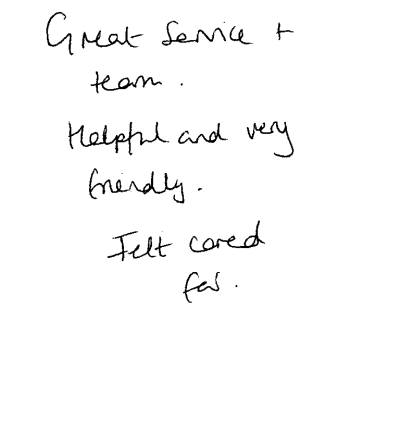 Great Service +
team.
Helpful and very
friendly.
Felt cared
for.